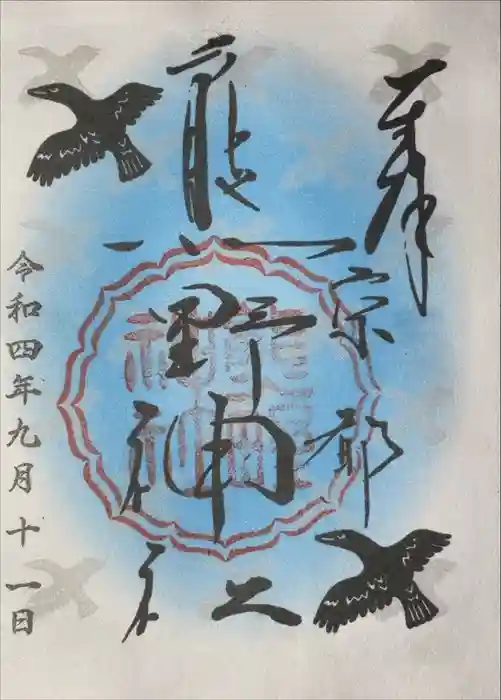 奉
京都
熊野神社
令和四年九月十一日